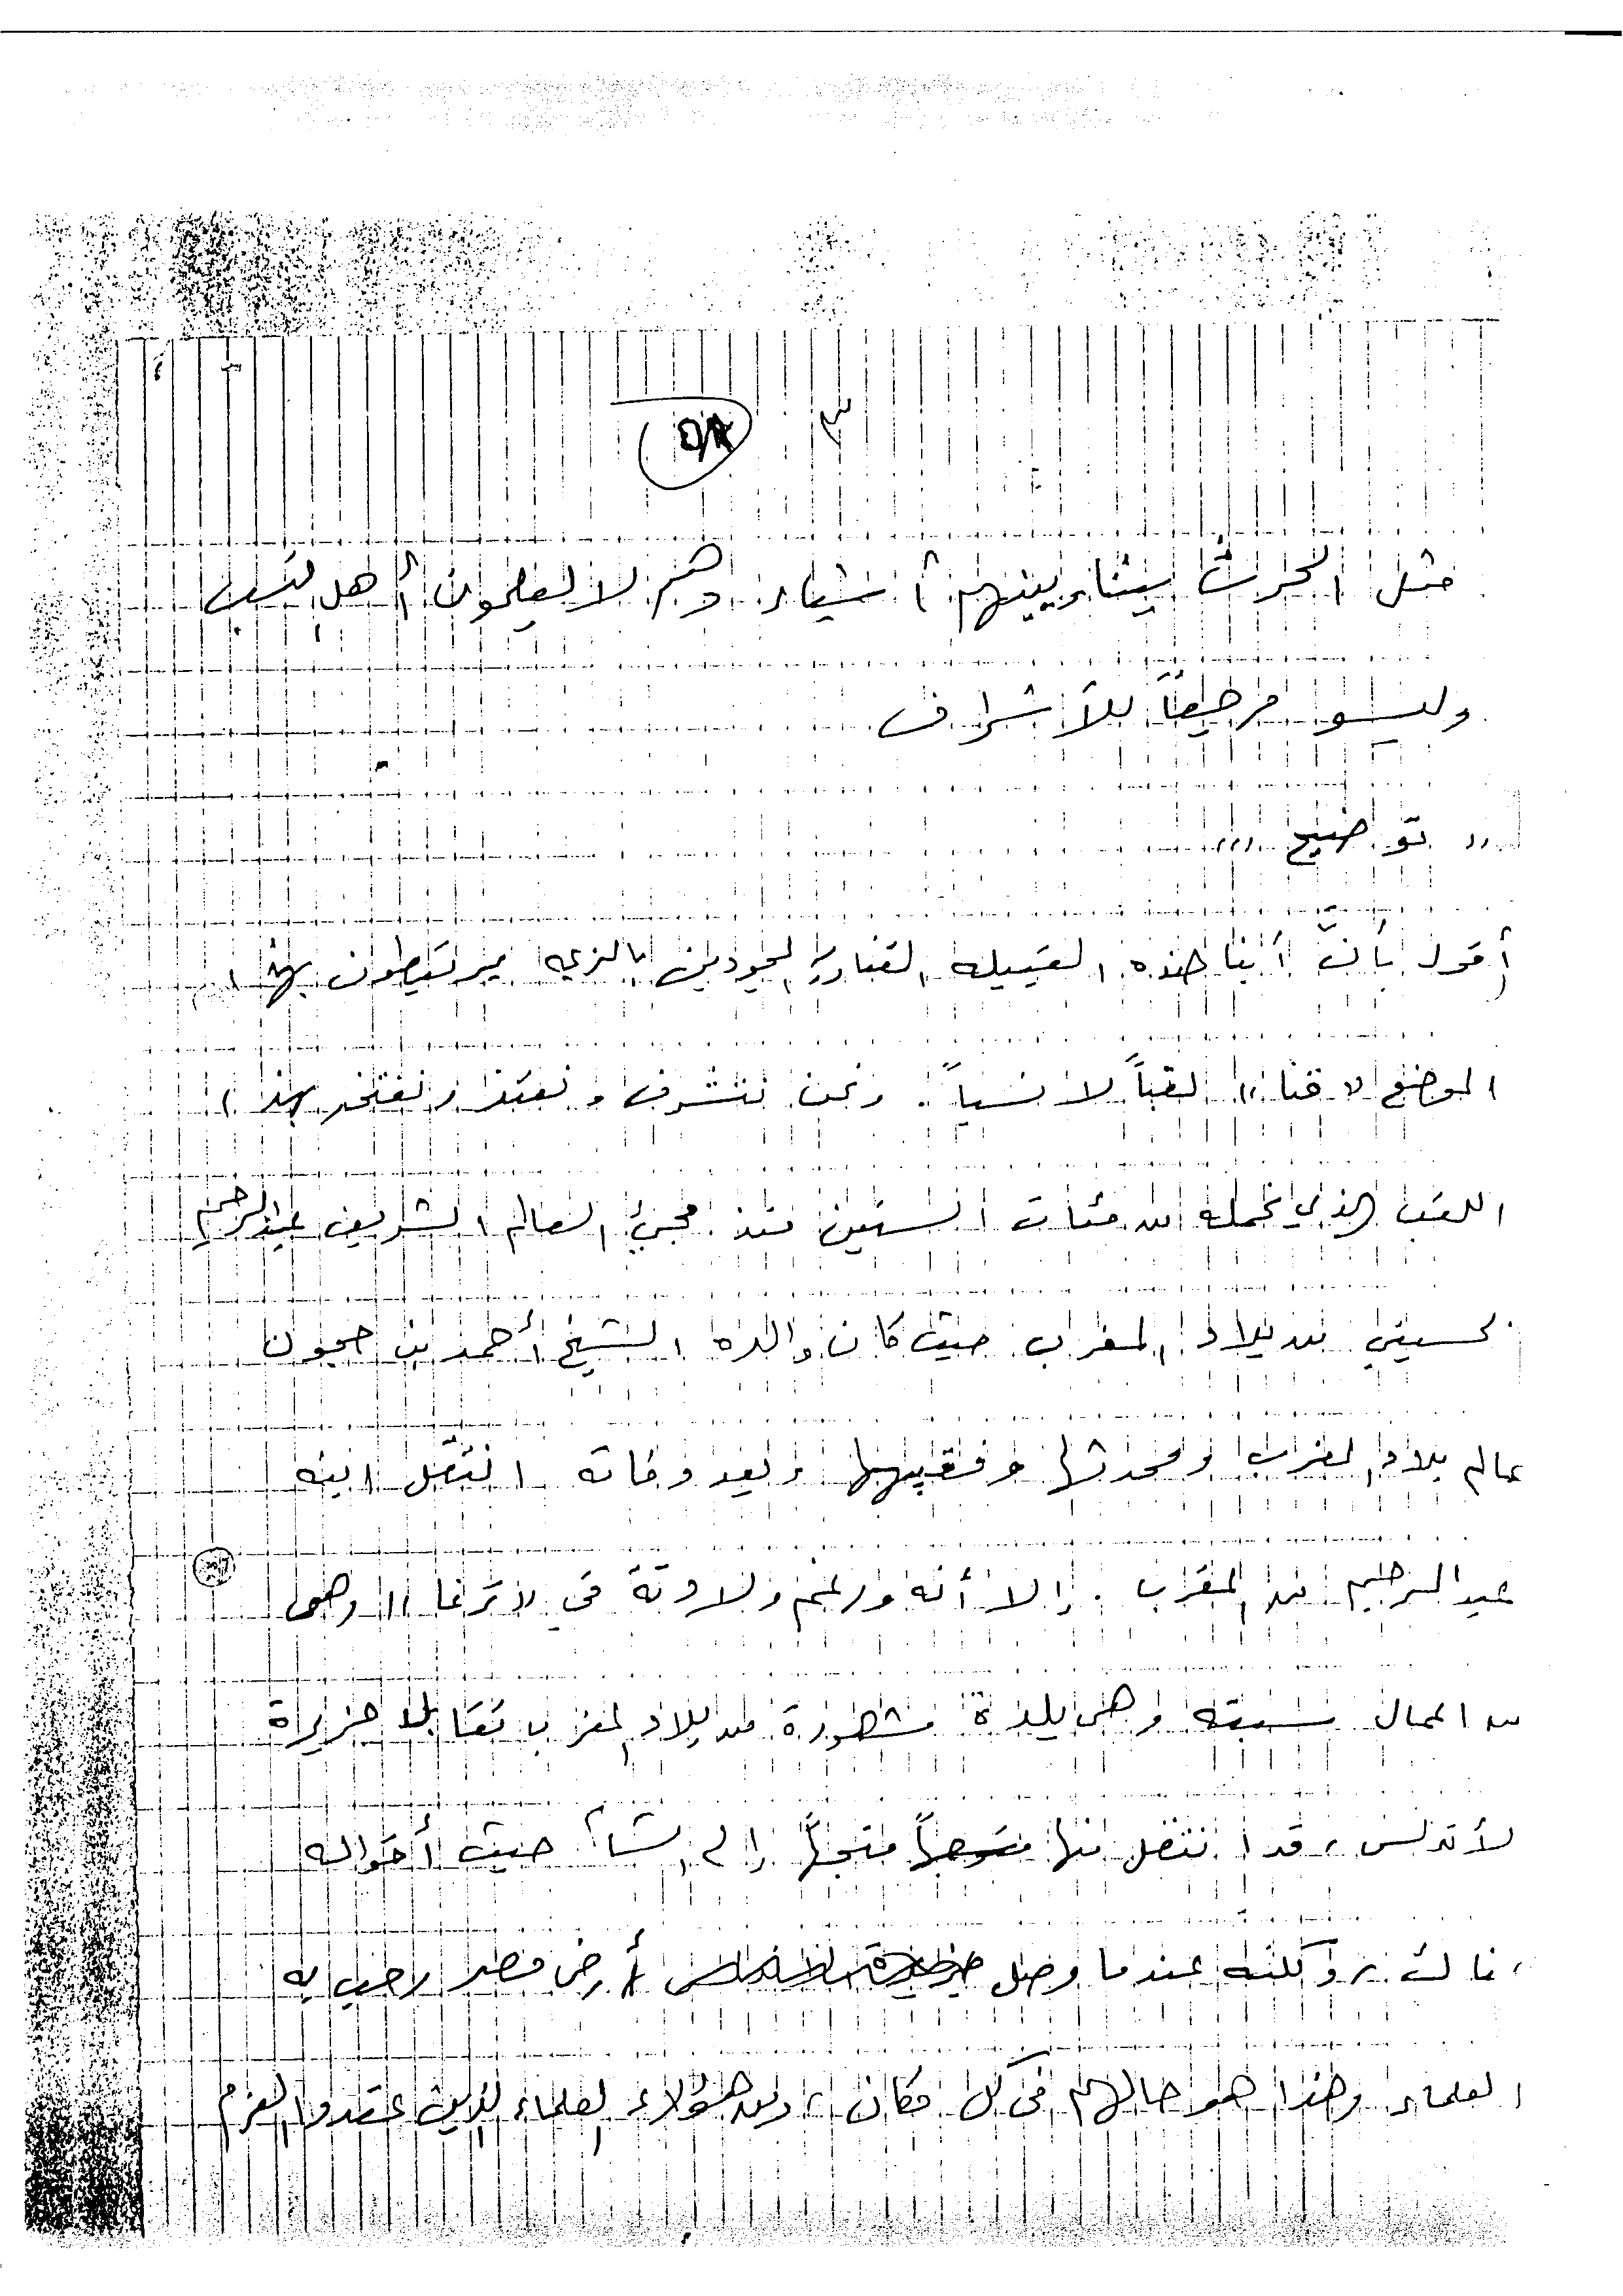 ٣
مثل الحراث بيثار بينهم أشياء وهم لا يعلمون أهل نسب
وليسو مرضيعاً للأشراف
" توضيح "
أقول بأن أبنا هذه القبيله القناويه الموجودين يالنزعه يرتبطون بهذا
الموضع لا قنا " لقباً لا نسباً . ونحن نتشرف و نعتز ونفتخر بهذا
اللقب الذي نحمله من مئات السنين منذ مجئ العالم الشريف عبدالرحيم
لحسيني من بلاد المغرب حيث كان والده الشيخ أحمد بن حجون
عالم بلاد المغرب ومحدثها وفقيهها وبعد وفاته انتقل ابنه
عبدالرحيم من المغرب . إلا أنه ورغم ولادته في " ترغا " وهى
من اعمال سبته وهى بلدة مشهورة من بلاد المغرب تقابل جزيرة
لأندلس ، قد انتقل منها متجهاً إلى الشام حيث أخواله
هناك ، ولكنه عندما وصل أرض مصر رحب به
العلماء وهذا هو حالهم فى كل مكان ، ومن هؤلاء العلماء الذين عقدوا العزم